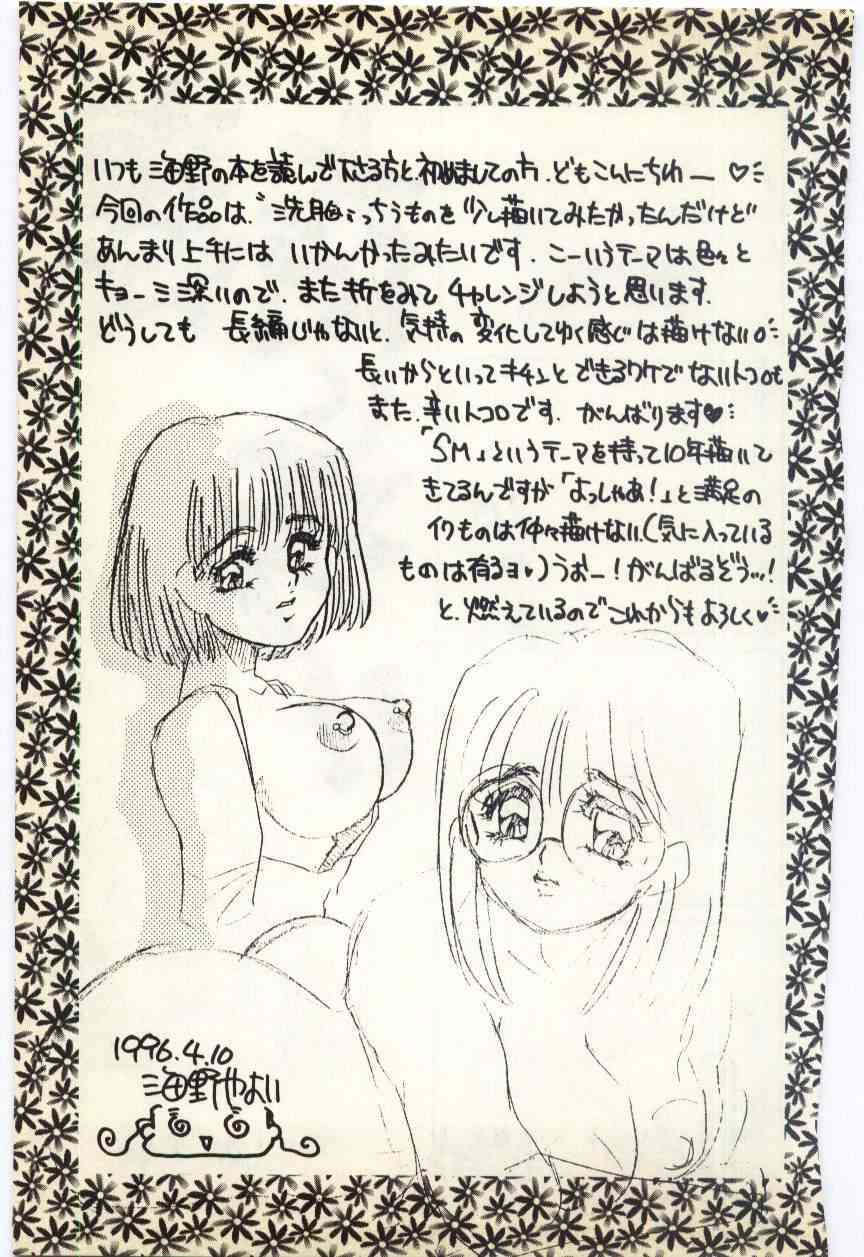 いつも海野の本を読んで下さる方と、初めましての方、どもこんにちわー♡
今回の作品は、"洗脳"っちうものを少し描いてみたかったんだけど
あんまり上手には いかんかったみたいです。こーいうテーマは色々と
キョーミ深いので、また折をみて チャレンジしようと思います。
どうしても 長編じゃないと、気持の変化してゆく感じは描けない。
長いからといってキチンとできるワケでないトコロも
また、辛いトコロです。がんばります♥
「SM」というテーマを持って10年描いて
きてるんですが「よっしゃあ!」と満足の
イクものは仲々描けない(気に入っている
ものは有るヨ♥)うおー!がんばるぞうッ!
と、燃えているのでこれからもよろしく♥
1996.4.10
海野やよい